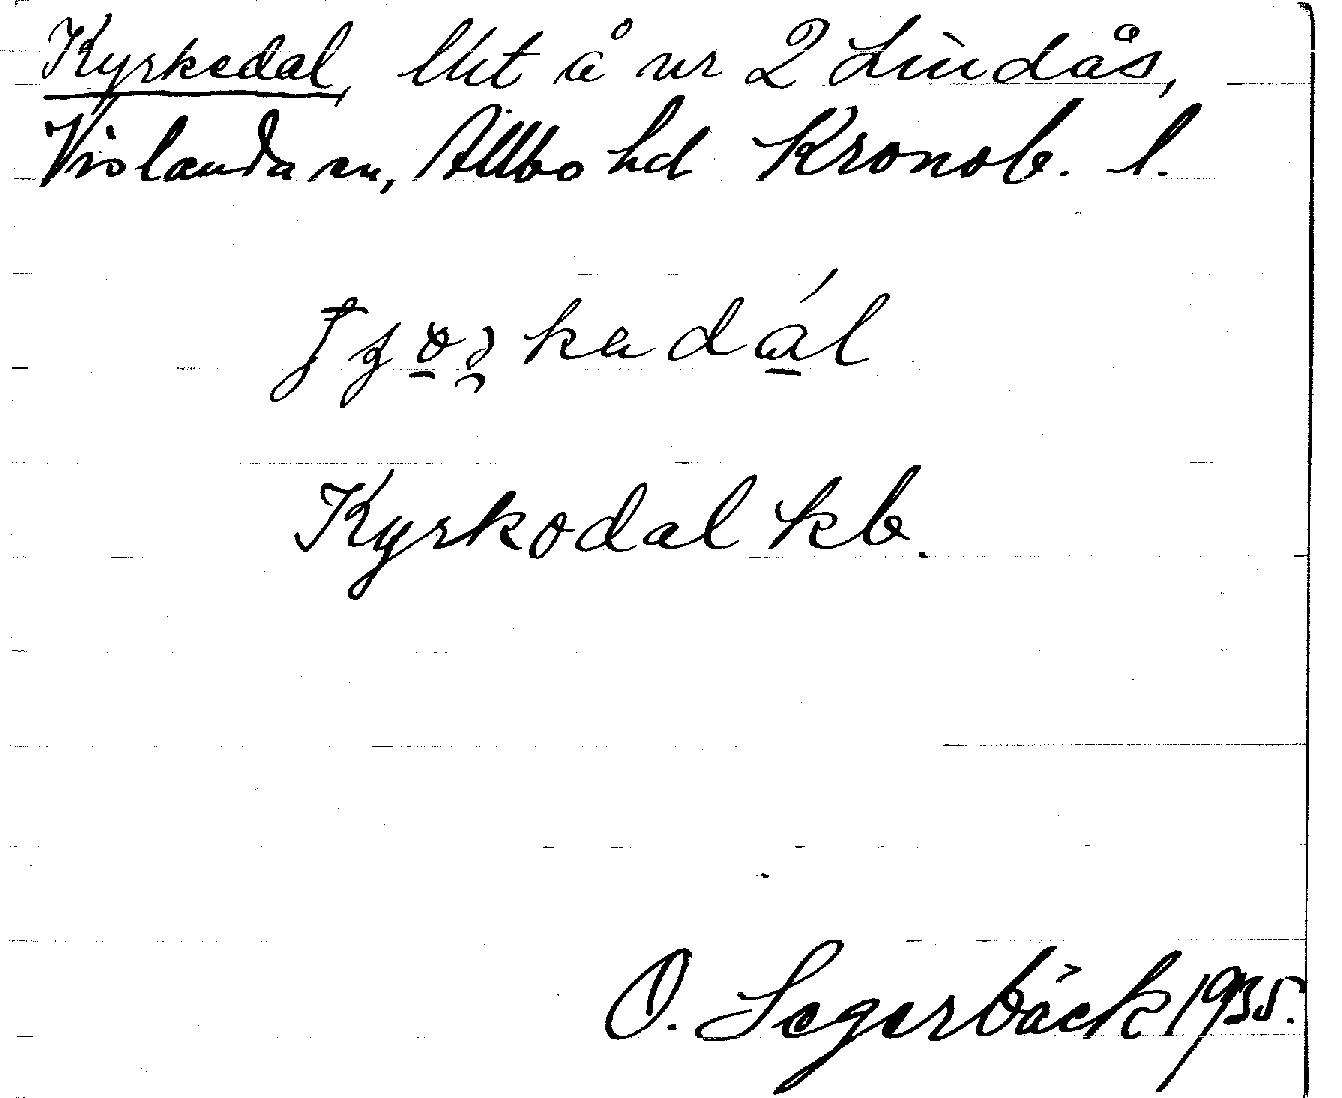 Kyrkedal, lht å nr 2 Lindås,
Vislanda sn, Allbo hd Kronob. l.
kadál
Kyrkodal kb.
O. Segerbäck 1935.